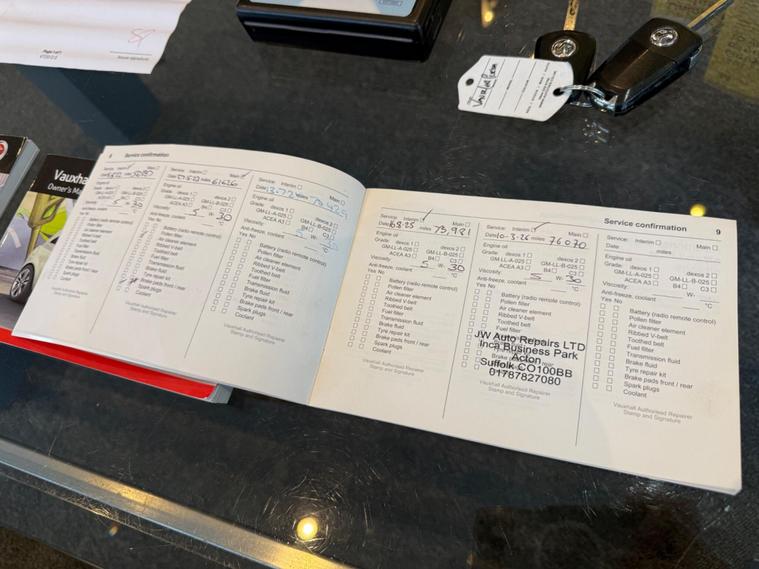 Page 1 of 1
Vauxhall
Owner's Ma
8 Service confirmation
Service: Interim Main
Date miles
Engine oil
Grade: dexos 1 dexos 2
GM-LL-A-025 GM-LL-B-025
ACEA A3 B4 C3
Viscosity 5 W- 30
Anti-freeze, coolant °C
Yes No
Battery (radio remote control)
Pollen filter
Air cleaner element
Ribbed V-belt
Toothed belt
Fuel filter
Transmission fluid
Brake fluid
Tyre repair kit
Brake pads front / rear
Spark plugs
Coolant
Vauxhall Authorised Repairer
Stamp and Signature
Service: Interim Main
miles 61626
Engine oil
Grade: dexos 1 dexos 2
GM-LL-A-025 GM-LL-B-025
ACEA A3 B4 C3
Viscosity 5 W- 30
Anti-freeze, coolant °C
Yes No
Battery (radio remote control)
Pollen filter
Air cleaner element
Ribbed V-belt
Toothed belt
Fuel filter
Transmission fluid
Brake fluid
Tyre repair kit
Brake pads front / rear
Spark plugs
Coolant
Vauxhall Authorised Repairer
Stamp and Signature
Service: Interim Main
Date miles
Engine oil
Grade: dexos 1 dexos 2
GM-LL-A-025 GM-LL-B-025
ACEA A3 B4 C3
Viscosity W-
Anti-freeze, coolant °C
Yes No
Battery (radio remote control)
Pollen filter
Air cleaner element
Ribbed V-belt
Toothed belt
Fuel filter
Transmission fluid
Brake fluid
Tyre repair kit
Brake pads front / rear
Spark plugs
Coolant
Vauxhall Authorised Repairer
Stamp and Signature
Service confirmation 9
Service: Interim Main
Date miles 73,981
Engine oil
Grade: dexos 1 dexos 2
GM-LL-A-025 GM-LL-B-025
ACEA A3 B4 C3
Viscosity 5 W- 30
Anti-freeze, coolant °C
Yes No
Battery (radio remote control)
Pollen filter
Air cleaner element
Ribbed V-belt
Toothed belt
Fuel filter
Transmission fluid
Brake fluid
Tyre repair kit
Brake pads front / rear
Spark plugs
Coolant
Vauxhall Authorised Repairer
Stamp and Signature
Service: Interim Main
Date 10-3-26 miles 76070
Engine oil
Grade: dexos 1 dexos 2
GM-LL-A-025 GM-LL-B-025
ACEA A3 B4 C3
Viscosity 5 W- 30
Anti-freeze, coolant °C
Yes No
Battery (radio remote control)
Pollen filter
Air cleaner element
Ribbed V-belt
Toothed belt
Fuel filter
JW Auto Repairs LTD
Inca Business Park
Acton
Suffolk CO100BB
01787827080
Vauxhall Authorised Repairer
Stamp and Signature
Service: Interim Main
Date miles
Engine oil
Grade: dexos 1 dexos 2
GM-LL-A-025 GM-LL-B-025
ACEA A3 B4 C3
Viscosity W-
Anti-freeze, coolant °C
Yes No
Battery (radio remote control)
Pollen filter
Air cleaner element
Ribbed V-belt
Toothed belt
Fuel filter
Transmission fluid
Brake fluid
Tyre repair kit
Brake pads front / rear
Spark plugs
Coolant
Vauxhall Authorised Repairer
Stamp and Signature